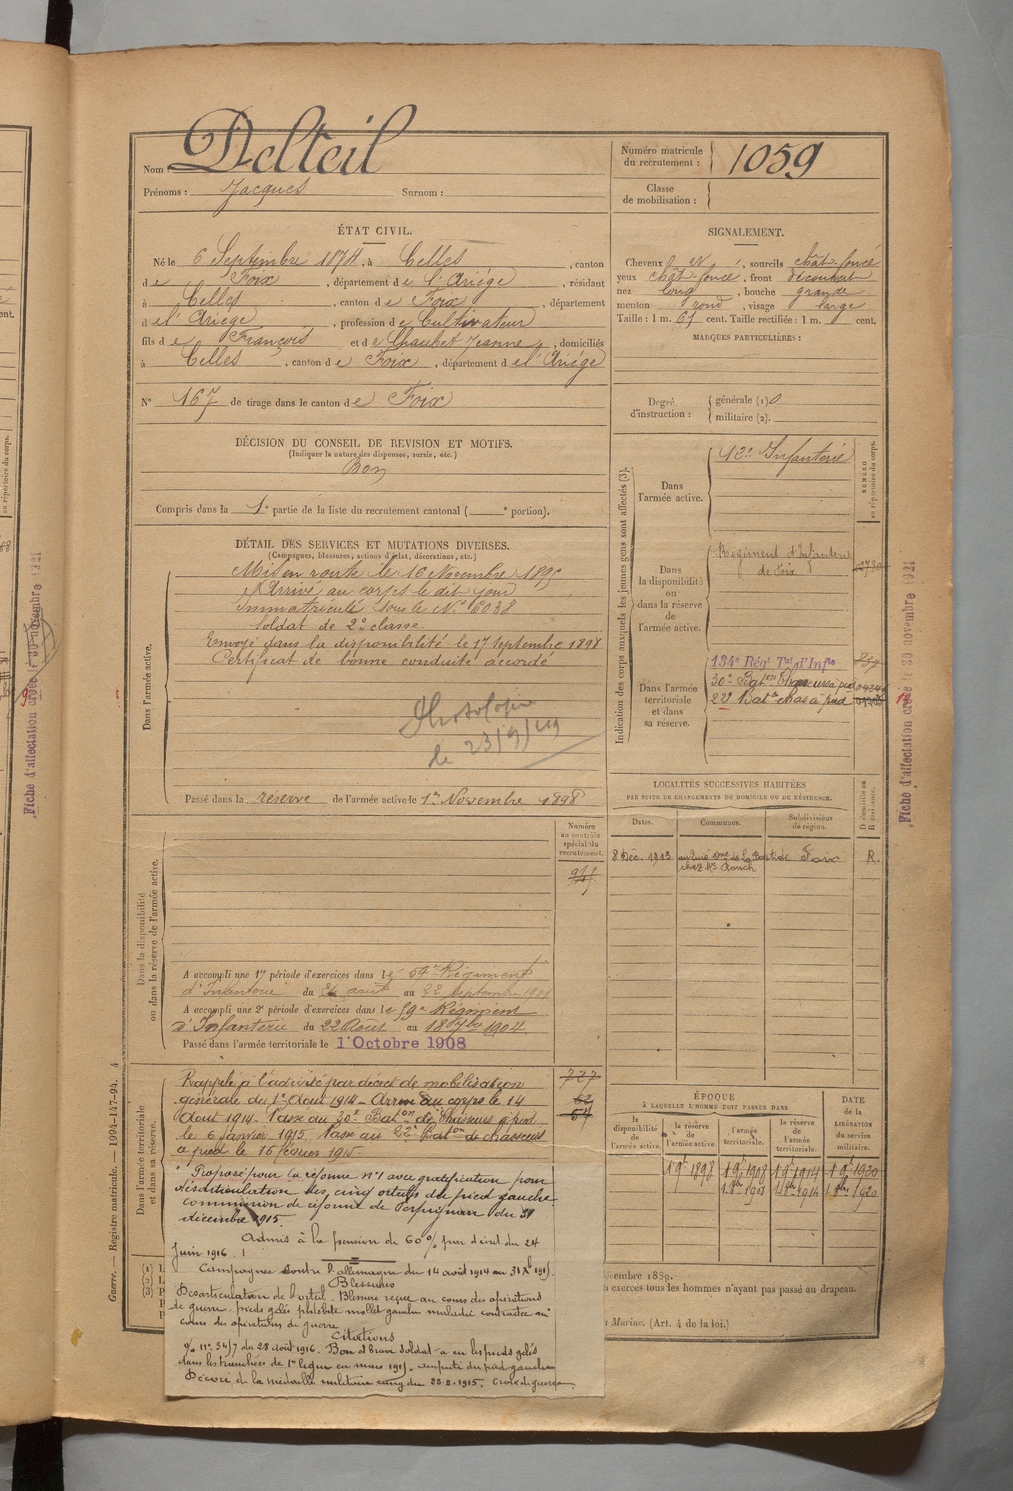 Nom : Delteil
Prénoms : Jacques Surnom :
Numéro matricule du recrutement : 1059
Classe de mobilisation :
ÉTAT CIVIL.
Né le 6 Septembre 1874, à Celles, canton
de Foix, département de l'Ariège, résidant
à Celles, canton de Foix, département
de l'Ariège, profession de Cultivateur
fils de François et de Chaubet Jeanne, domiciliés
à Celles, canton de Foix, département de l'Ariège
N° 167 de tirage dans le canton de Foix
SIGNALEMENT.
Cheveux et, sourcils chât. foncé
yeux chât. foncé, front découvert
nez long, bouche grande
menton rond, visage large
Taille : 1 m. 67 cent. Taille rectifiée : 1 m. cent.
MARQUES PARTICULIÈRES :
Degré d'instruction : générale (1) 0
militaire (2).
DÉCISION DU CONSEIL DE REVISION ET MOTIFS.
(Indiquer la nature des dispenses, sursis, etc.)
Bon
Compris dans la 1e partie de la liste du recrutement cantonal ( e portion).
DÉTAIL DES SERVICES ET MUTATIONS DIVERSES.
(Campagnes, blessures, actions d'éclat, décorations, etc.)
Dans l'armée active.
Mis en route le 16 Novembre 1895
Arrivé au corps le dit jour
Immatriculé sous le N° 6038
Soldat de 2e classe
Envoyé dans la disponibilité le 17 septembre 1898
Certificat de bonne conduite accordé
le 23/9/
Passé dans la réserve de l'armée active le 1er Novembre 1898
Indication des corps auxquels les jeunes gens sont affectés (3).
NUMÉRO au répertoire du corps.
Dans l'armée active. Infanterie
Dans la disponibilité ou dans la réserve de l'armée active.
Régiment d'Infanterie
de Foix
Dans l'armée territoriale et dans sa réserve.
134e Régt Tal d'Infie
30e Baton Chasseurs à pied
22 Baton chas à pied
Fiche d'affectation créée le 30 novembre 1921
LOCALITÉS SUCCESSIVES HABITÉES
PAR SUITE DE CHANGEMENTS DE DOMICILE OU DE RÉSIDENCE.
Dates. Communes. Subdivisions de région. D domicile ou R résidence.
8 Déc. 1913 Foix R.
Numéro au contrôle spécial du recrutement.
Dans la disponibilité ou dans la réserve de l'armée active.
A accompli une 1re période d'exercices dans le 59e Régiment
d'Infanterie du août au 22 septembre 1901
A accompli une 2e période d'exercices dans le 59e Régiment
d'Infanterie du 22 Août au 18 7bre 1904.
Passé dans l'armée territoriale le 1er Octobre 1908
Dans l'armée territoriale et dans sa réserve.
Rappelé à l'activité par décret de mobilisation
générale du 1er Aout 1914 - Arrivé au corps le 14
Aout 1914. Passé au 30e Baton de Chasseurs à pied
le 6 janvier 1915. Passé au 22e Baton de chasseurs
à pied le 16 février 1915
727
62
54
Proposé pour la réforme n°1 avec gratification pour
désarticulation des cinq orteils du pied gauche
commission de réforme de Perpignan du 31
décembre 1915.
Admis à la pension de 60% par décret du 24
Juin 1916.
Campagnes contre l'allemagne du 14 août 1914 au 31 Xbre 1915.
Blessures
Désarticulation de l'orteil. Blessure reçue au cours des opérations
de guerre. pieds gelés phlébite mollet gauche maladie contractée au
cours des opérations de guerre
Citations
du 28 août 1916. Bon et brave soldat a eu les pieds gelés
dans les tranchées de 1re ligne en mars 1915. amputé du pied gauche
Décoré de la médaille militaire rang du 1915. Croix de guerre.
ÉPOQUE
À LAQUELLE L'HOMME DOIT PASSER DANS
DATE de la LIBÉRATION du service militaire.
la disponibilité de l'armée active. la réserve de l'armée active. l'armée territoriale. la réserve de l'armée territoriale.
1 9bre 1898 1 9bre 1908 1 9bre 1914 1 9bre 1920
1 8bre 1908 1 8bre 1914 1 8bre 1920
novembre 1889.
exercés tous les hommes n'ayant pas passé au drapeau.
Marine. (Art. 4 de la loi.)
Guerre. — Registre matricule. — 1994-147-94. 4